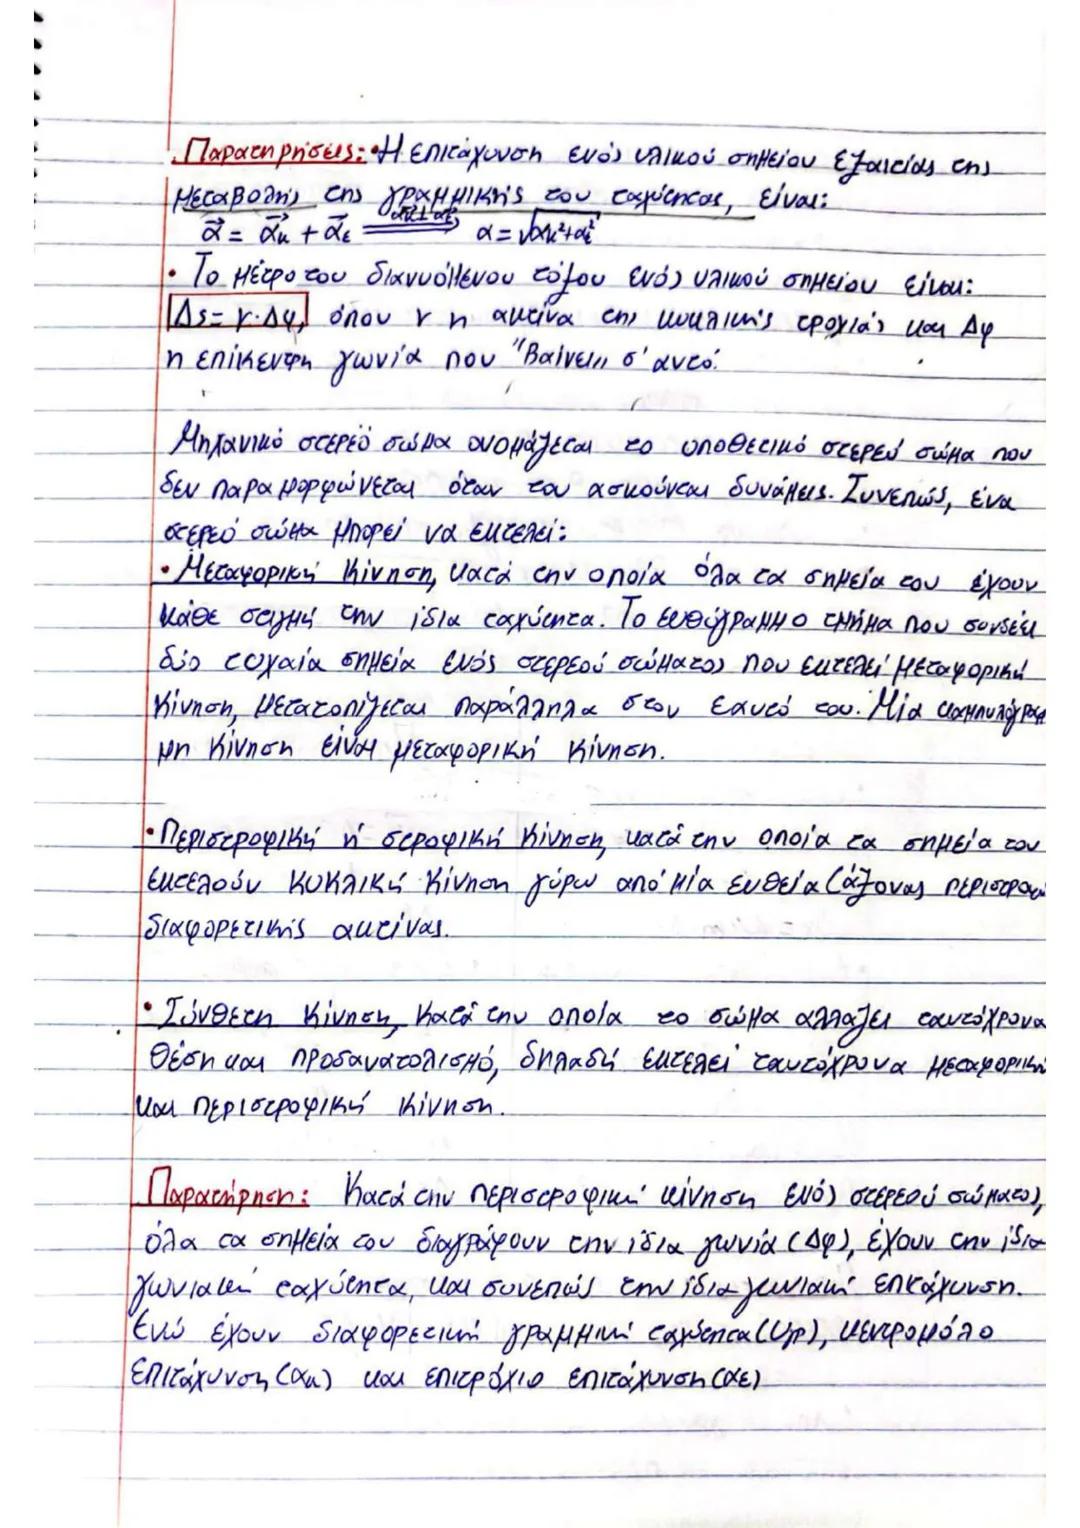 Παρατηρήσεις: • Η επιτάχυνση ενός υλικού σημείου εξαιτίας της
μεταβολής της γραμμικής του ταχύτητας, είναι:
α⃗ = α⃗κ + α⃗ε ⟹ (α⃗κ⊥α⃗ε) α=√ακ²+αε²
• Το μέτρο του διανυόμενου τόξου ενός υλικού σημείου είναι:
Δs= r·Δφ, όπου r η ακτίνα της κυκλικής τροχιάς και Δφ
η επίκεντρη γωνία που "βαίνει" σ' αυτό.
Μηχανικό στερεό σώμα ονομάζεται το υποθετικό στερεό σώμα που
δεν παραμορφώνεται όταν του ασκούνται δυνάμεις. Συνεπώς, ένα
στερεό σώμα μπορεί να εκτελεί:
• Μεταφορική κίνηση, κατά την οποία όλα τα σημεία του έχουν
κάθε στιγμή την ίδια ταχύτητα. Το ευθύγραμμο τμήμα που συνδέει
δύο τυχαία σημεία ενός στερεού σώματος που εκτελεί μεταφορική
κίνηση, μετατοπίζεται παράλληλα στον εαυτό του. Μία καμπυλόγραμ
μη κίνηση είναι μεταφορική κίνηση.
• Περιστροφική ή στροφική κίνηση, κατά την οποία τα σημεία του
εκτελούν κυκλική κίνηση γύρω από μία ευθεία (άξονας περιστροφ
διαφορετικής ακτίνας.
• Σύνθετη κίνηση, κατά την οποία το σώμα αλλάζει ταυτόχρονα
θέση και προσανατολισμό, δηλαδή εκτελεί ταυτόχρονα μεταφορική
και περιστροφική κίνηση.
Παρατήρηση: Κατά την περιστροφική κίνηση ενός στερεού σώματος,
όλα τα σημεία του διαγράφουν την ίδια γωνία (Δφ), έχουν την ίδια
γωνιακή ταχύτητα, και συνεπώς την ίδια γωνιακή επιτάχυνση.
Ενώ έχουν διαφορετική γραμμική ταχύτητα (υγρ), κεντρομόλο
επιτάχυνση (ακ) και επιτρόχιο επιτάχυνση (αε)